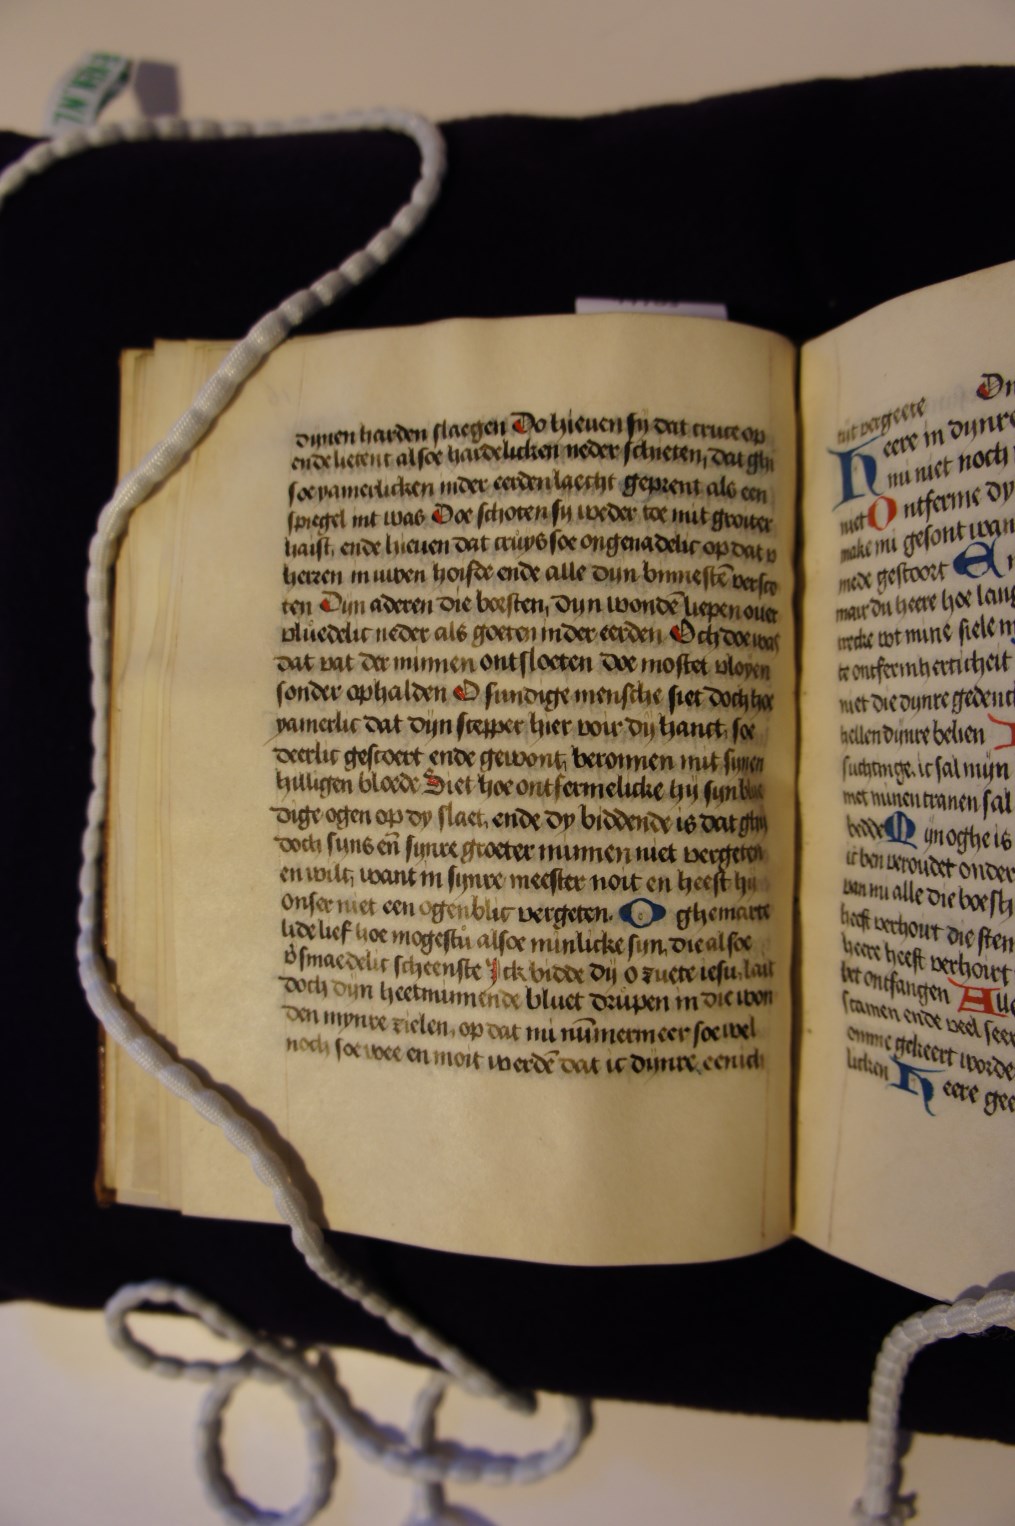 dynen harden slaegen Do hieven sy dat cruce op
ende lietent alsoe hardelicken neder schieten, dat ghi
soe yamerlicken inder eerden laecht geprent als een
spiegel int was Doe schoten sy weder toe mit groter
haist, ende hieven dat cruys soe ongenadelic op dat v
herten in uwen hoifde ende alle dyn binnestē
ten Dyn aderen die borsten, dyn wondē liepen over
vluedelic neder als goeten inder eerden Och doe was
dat vat der minnen ontsloeten doe mostet vloyen
sonder ophalden O sundige mensche siet doch hoe
yamerlic dat dyn scepper hier voir dy hanct, soe
deerlic gescoert ende gewont, beronnen mit synen
hilligen bloede Siet hoe ontfermelicke hy syn
dige ogen op dy slaet, ende dy biddende is dat ghy
doch syns eñ synre groeter minnen niet vergeten
en wilt, want in synre meester noit en heeft hy
onser niet een ogenblic vergeten. O ghemarte
lide lief hoe mogestu alsoe minlicke syn, die alsoe
v̓smaedelic scheenste Ick bidde dy o zuete iesu, lait
doch dyn heetminnende bluet drupen in die won
den mynre zielen, op dat mi nūmermeer soe wel
noch soe wee en moit werdē dat ic dynre, eenich
On
mit vergeete
Heere in dynre
mi niet noch
niet Ontferme dy
make mi gesont wan
mede gestoort En
mair du heere hoe lang
trecke wt mine siele
te ontfermherticheit
niet die dynre gedenct
hellen dynre belien
suchtinge. ic sal myn
met minen tranen sal
bedde Myn oghe is
ic ben veroudet onder
van mi alle die boesh
heeft verhoirt die stem
heere heeft verhoirt
bet ontfangen Alle
scamen ende veel seer
omme gekeert worde
licken Heere gee